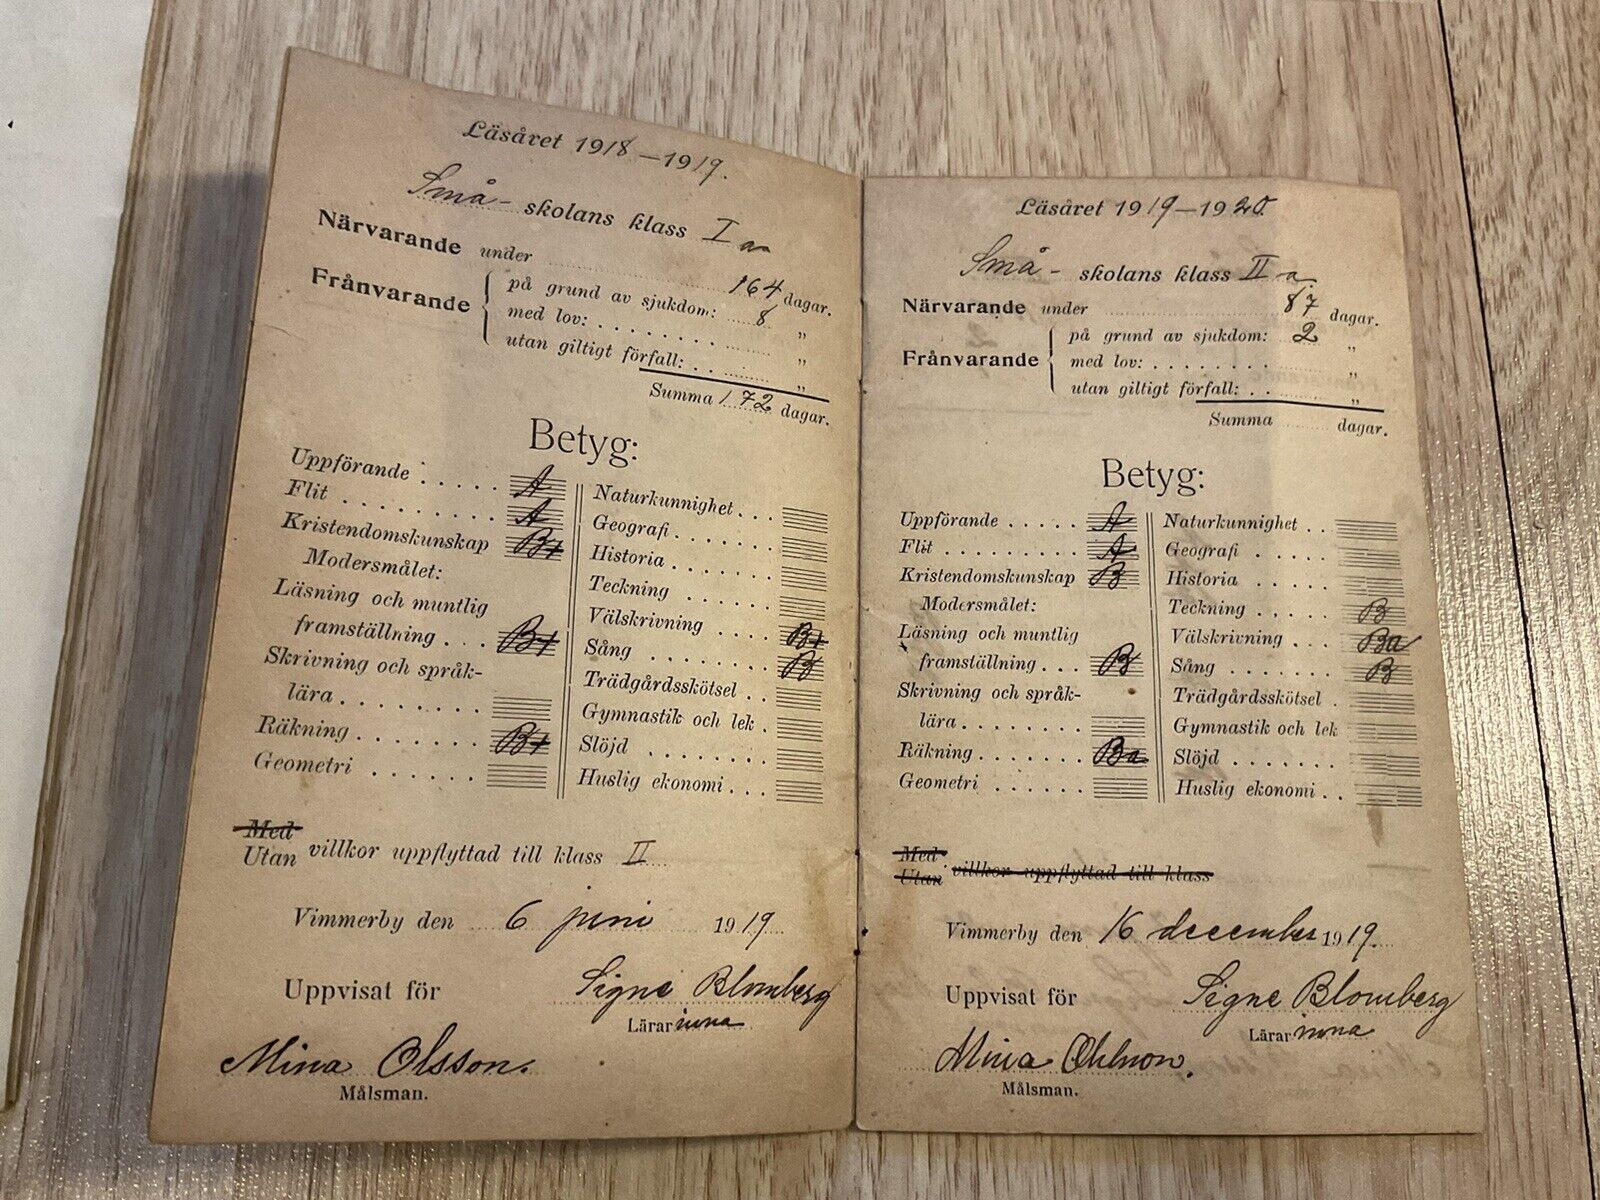 Läsåret 1918–1919.
Små- skolans klass I a
Närvarande under 164 dagar.
Frånvarande
på grund av sjukdom: 8 „
med lov: „
utan giltigt förfall: „
Summa 172 dagar.
Betyg:
Uppförande A
Flit A
Kristendomskunskap B+
Modersmålet:
Läsning och muntlig
framställning B+
Skrivning och språk-
lära
Räkning B+
Geometri
Naturkunnighet
Geografi
Historia
Teckning
Välskrivning B+
Sång B
Trädgårdsskötsel
Gymnastik och lek
Slöjd
Huslig ekonomi
Med
Utan villkor uppflyttad till klass II
Vimmerby den 6 juni 1919.
Uppvisat för
Signe Blomberg
Lärarinna
Mina Olsson.
Målsman.
Läsåret 1919–1920.
Små- skolans klass II a.
Närvarande under 87 dagar.
Frånvarande
på grund av sjukdom: 2 „
med lov: „
utan giltigt förfall: „
Summa dagar.
Betyg:
Uppförande A
Flit A
Kristendomskunskap B
Modersmålet:
Läsning och muntlig
framställning B
Skrivning och språk-
lära
Räkning Ba
Geometri
Naturkunnighet
Geografi
Historia
Teckning B
Välskrivning Ba
Sång B
Trädgårdsskötsel
Gymnastik och lek
Slöjd
Huslig ekonomi
Med
Utan villkor uppflyttad till klass
Vimmerby den 16 december 1919.
Uppvisat för
Signe Blomberg
Lärarinna
Mina
Målsman.